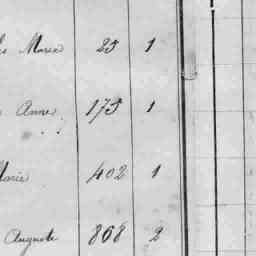 Marie 25 1
Anne 175 1
Marie 402 1
Auguste 868 2